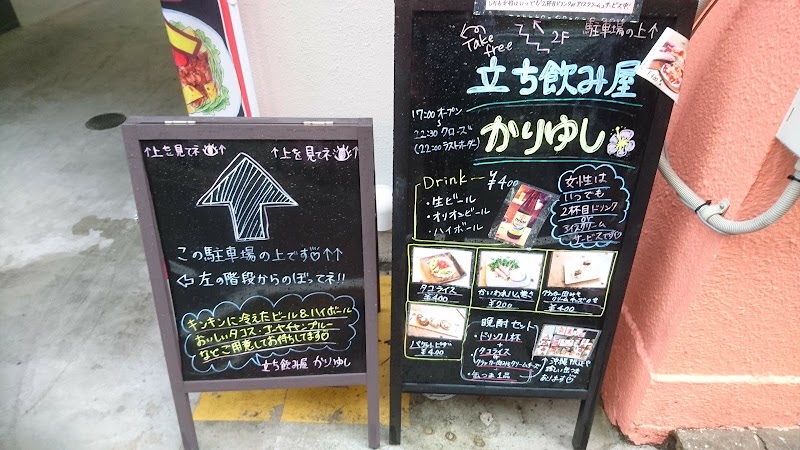 ↑上を見てネ↑
↑上を見てネ↑
この駐車場の上です♡↑↑
⇦左の階段からのぼってネ!!
キンキンに冷えたビール&ハイボール
おいしいタコス・チャンプルー
などご用意してお待ちしてます♡
立ち飲み屋 かりゆし
Take free
2F
駐車場の上↑
立ち飲み屋
かりゆし
17:00 オープン
22:30 クローズ
(22:00 ラストオーダー)
Drink ¥400
・生ビール
・オリオンビール
・ハイボール
女性は
いつでも
2杯目ドリンク
or
アイスクリーム
サービスです♡
タコライス
¥400
かいわれハム巻き
¥200
¥400
¥400
晩酌セット
・ドリンク1杯
+
・タコライス
クラッカー付クリームチーズ
・缶つま1品
↑沖縄限定や
珍しい缶つま
あります